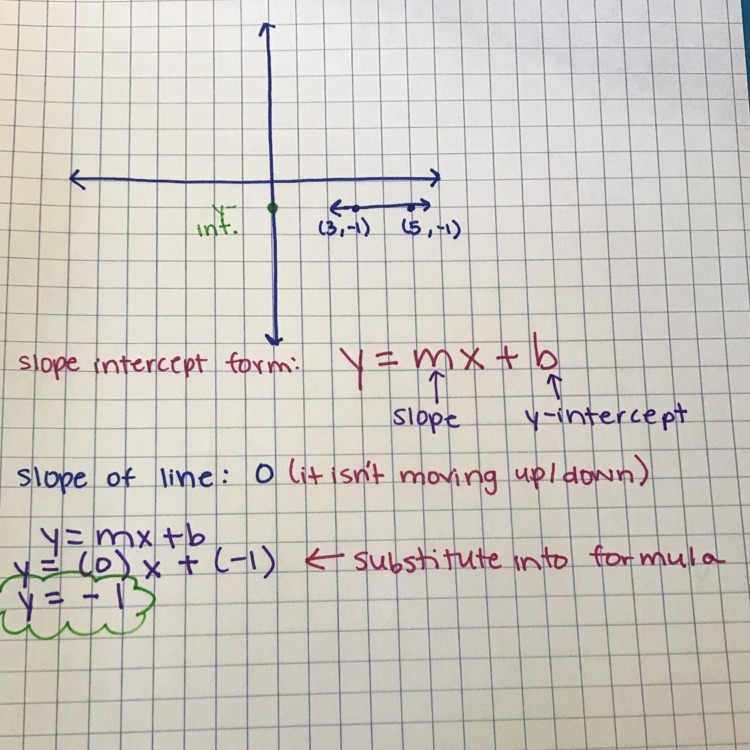 y-
int.
(3,-1) (5,-1)
slope intercept form: y = mx + b
slope y-intercept
slope of line: 0 (it isn't moving up/down)
y=mx+b
y = (0) x + (-1) ← substitute into formula
y = -1